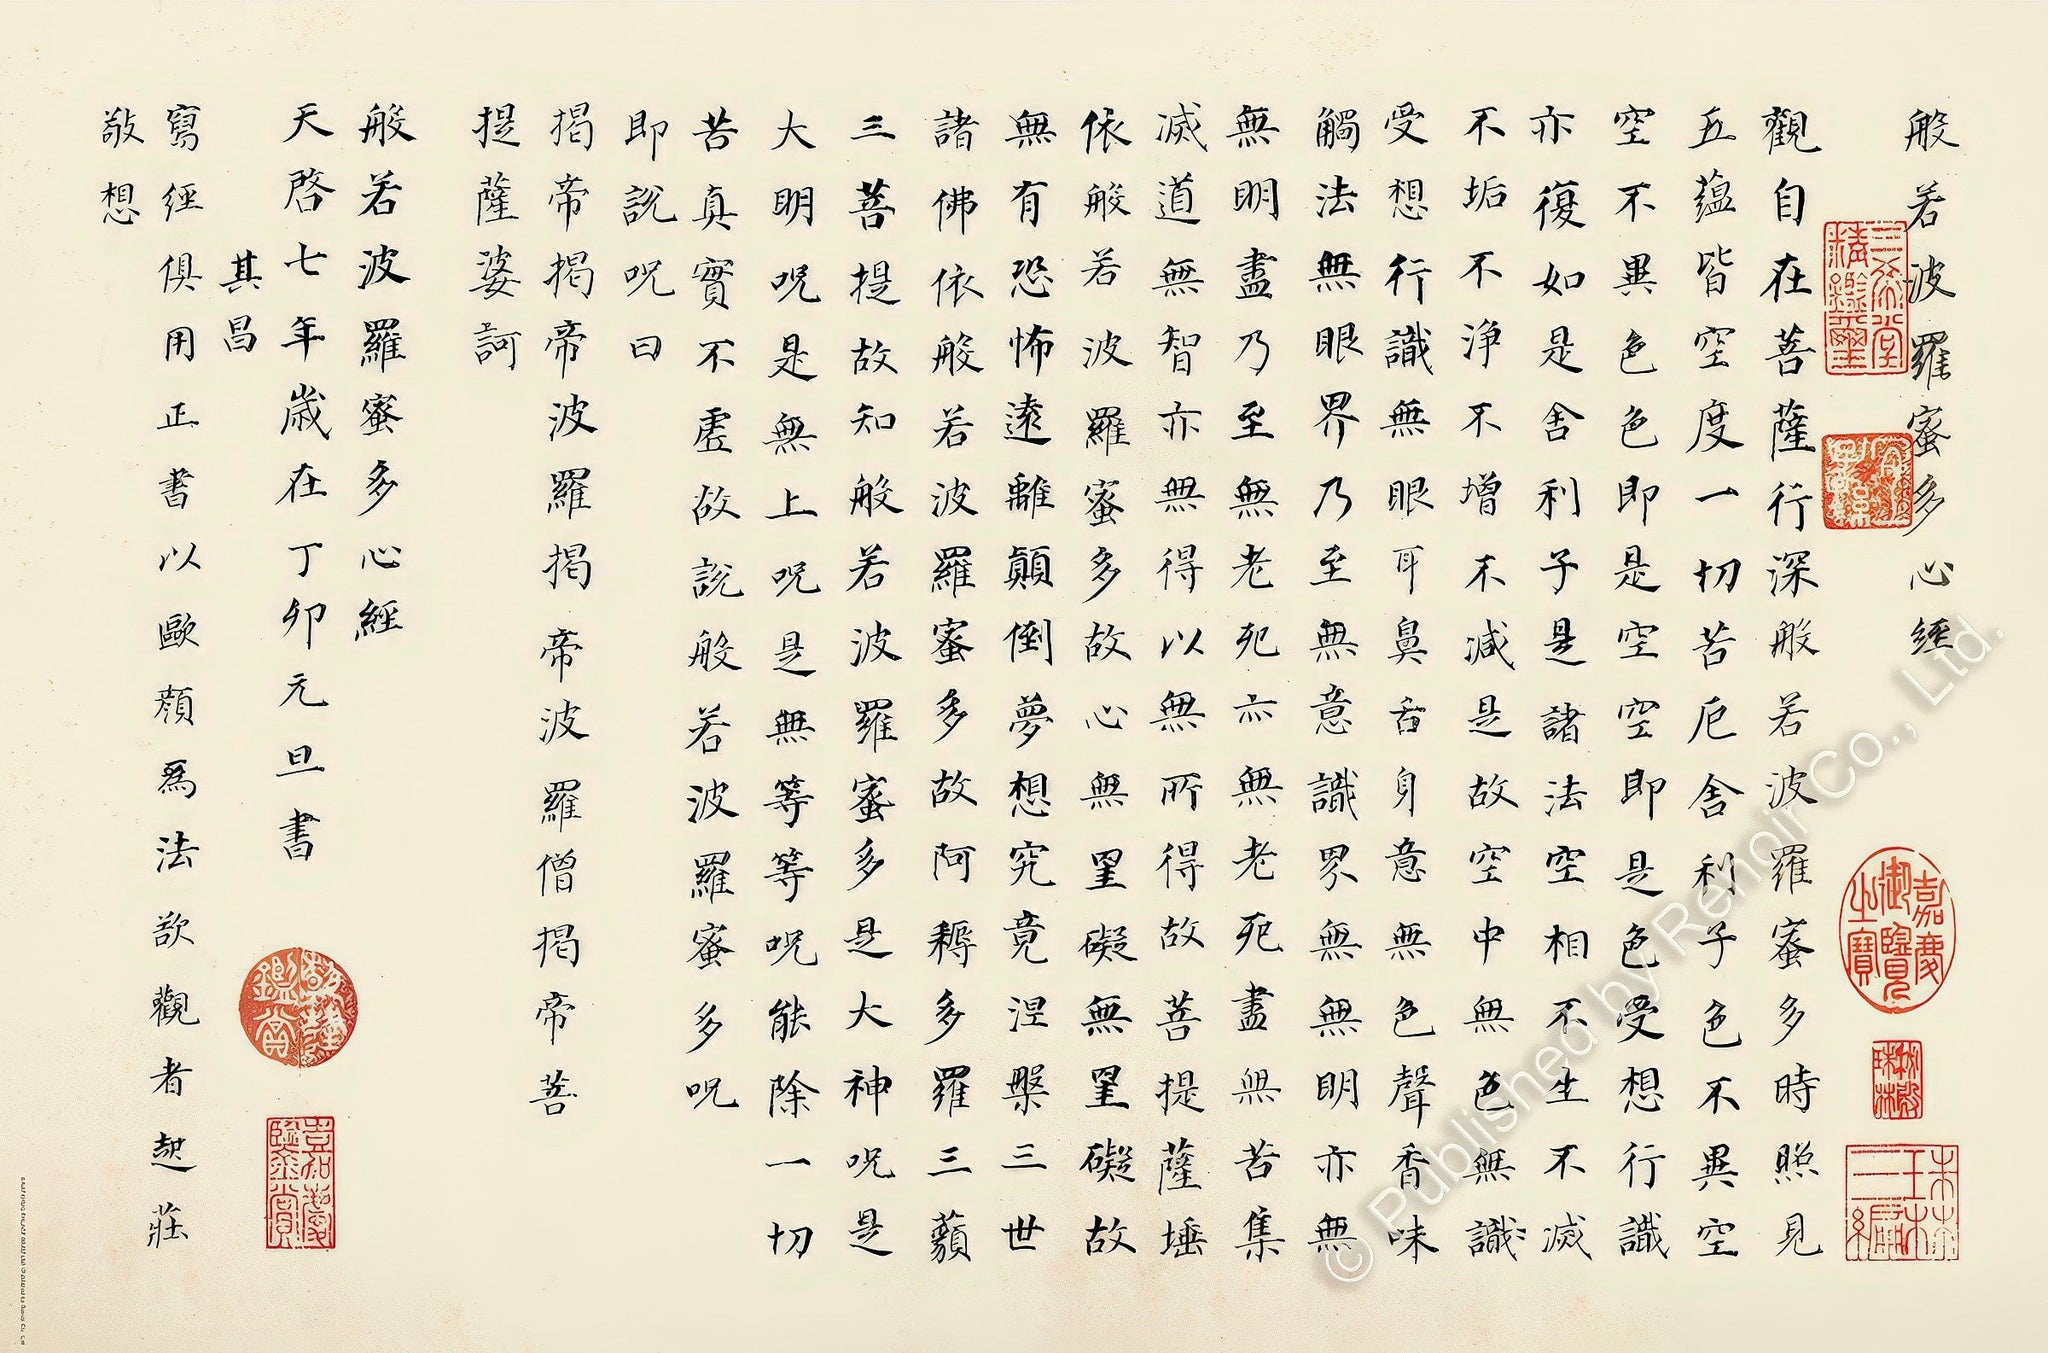 般若波羅蜜多心經
觀自在菩薩行深般若波羅蜜多時照見
五蘊皆空度一切苦厄舍利子色不異空
空不異色色即是空空即是色受想行識
亦復如是舍利子是諸法空相不生不滅
不垢不淨不增不減是故空中無色無識
受想行識無眼耳鼻舌身意無色聲香味
觸法無眼界乃至無意識界無無明亦無
無明盡乃至無老死亦無老死盡無苦集
滅道無智亦無得以無所得故菩提薩埵
依般若波羅蜜多故心無罣礙無罣礙故
無有恐怖遠離顛倒夢想究竟涅槃三世
諸佛依般若波羅蜜多故阿耨多羅三藐
三菩提故知般若波羅蜜多是大神呪是
大明呪是無上呪是無等等呪能除一切
苦真實不虛故說般若波羅蜜多呪
即說呪曰
揭帝揭帝波羅揭帝波羅僧揭帝菩
提薩婆訶
般若波羅蜜多心經
天啓七年歲在丁卯元旦書
其昌
寫經俱用正書以歐顏爲法欲觀者起莊
敬想
三希堂精鑑璽
宜子孫
嘉慶御覽之寶
秘殿珠林
乾隆鑑賞
嘉慶鑑賞
© Published by Renoir Co., Ltd.